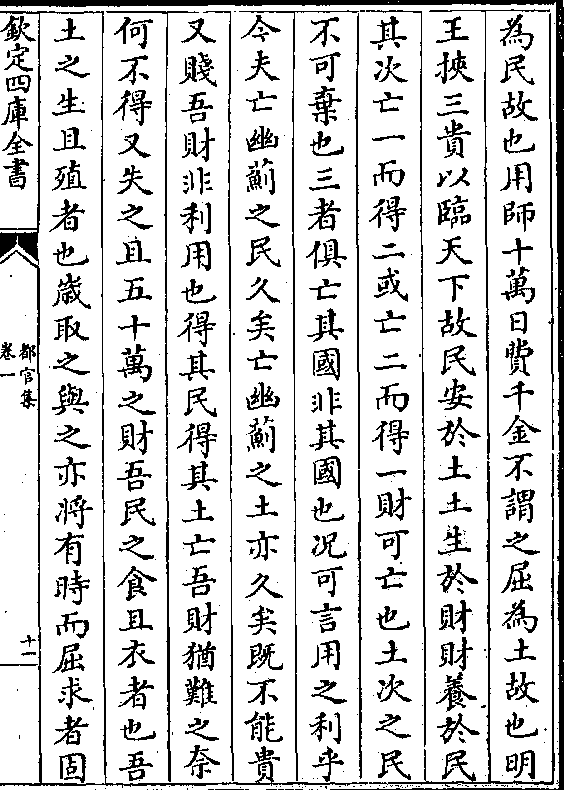 為民故也用師十萬日費千金不謂之屈為土故也明
王挾三貴以臨天下故民安於土土生於財財養於民
其次亡一而得二或亡二而得一財可亡也土次之民
不可棄也三者俱亡其國非其國也况可言用之利乎
今夫亡幽薊之民久矣亡幽薊之土亦久矣既不能貴
又賤吾財非利用也得其民得其土亡吾財猶難之奈
何不得又失之且五十萬之財吾民之食且衣者也吾
土之生且殖者也歳取之與之亦將有時而屈求者固
欽定四庫全書
都官集
卷一
十一